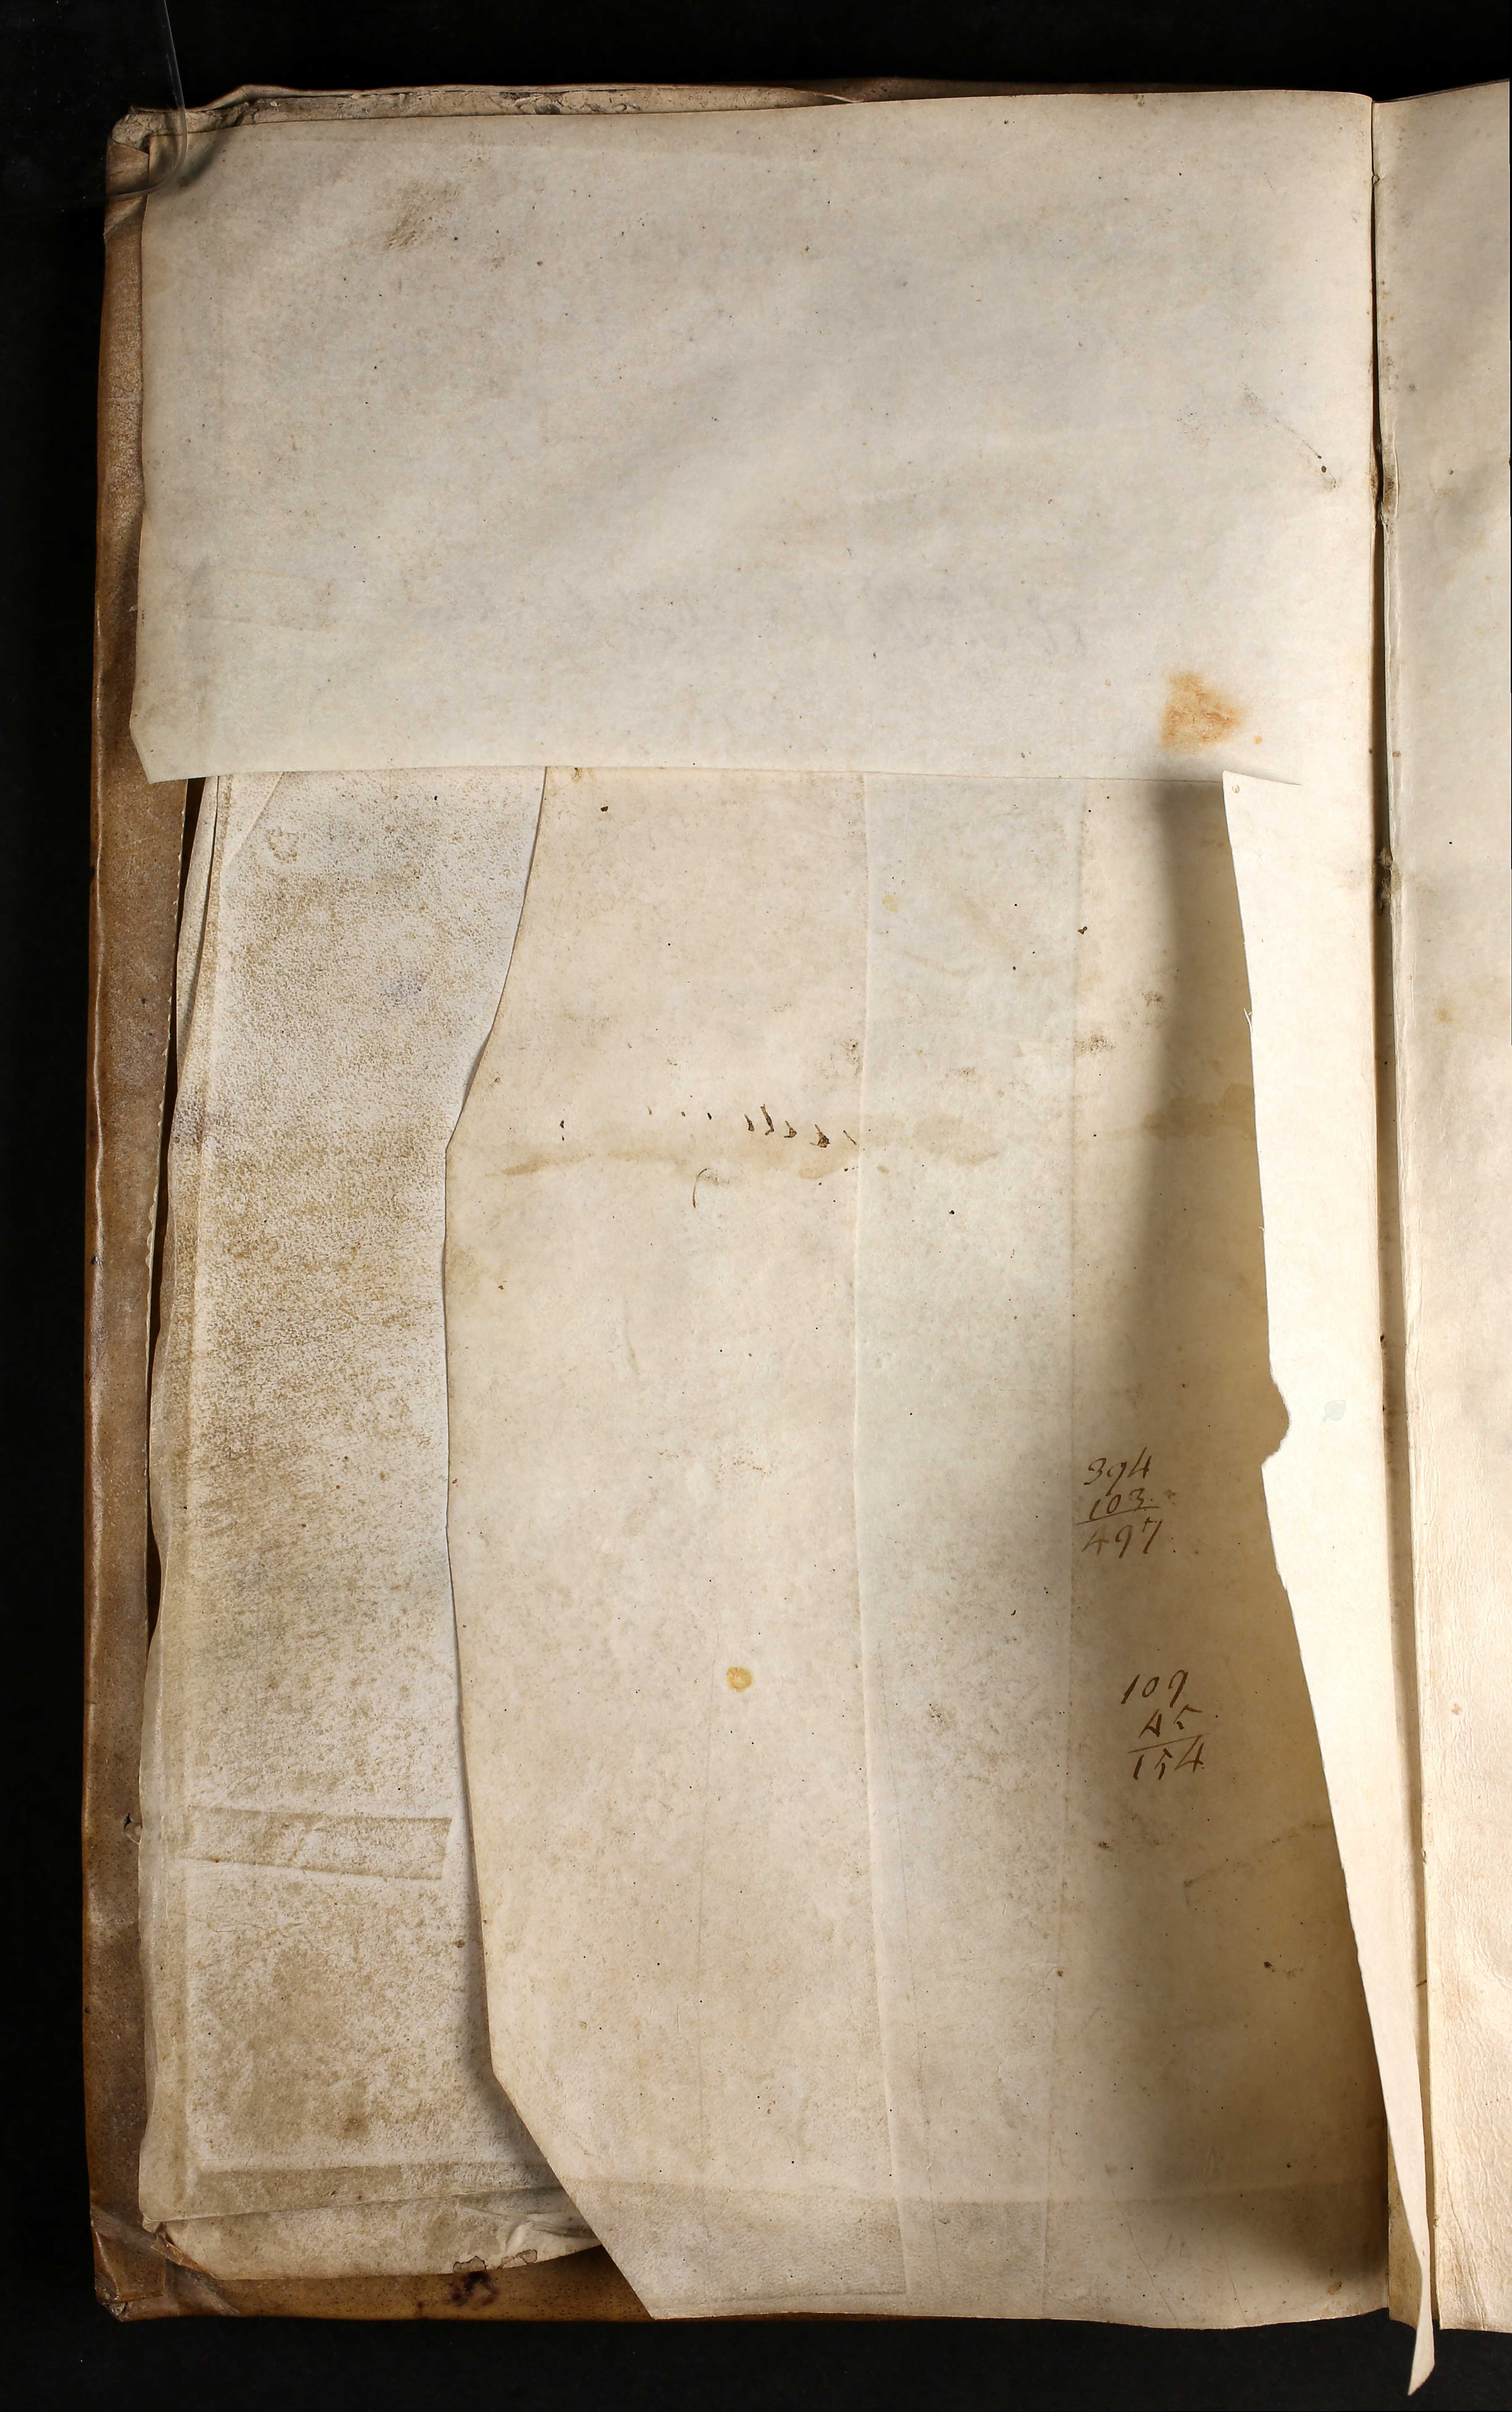 394
103
497
109
45
154